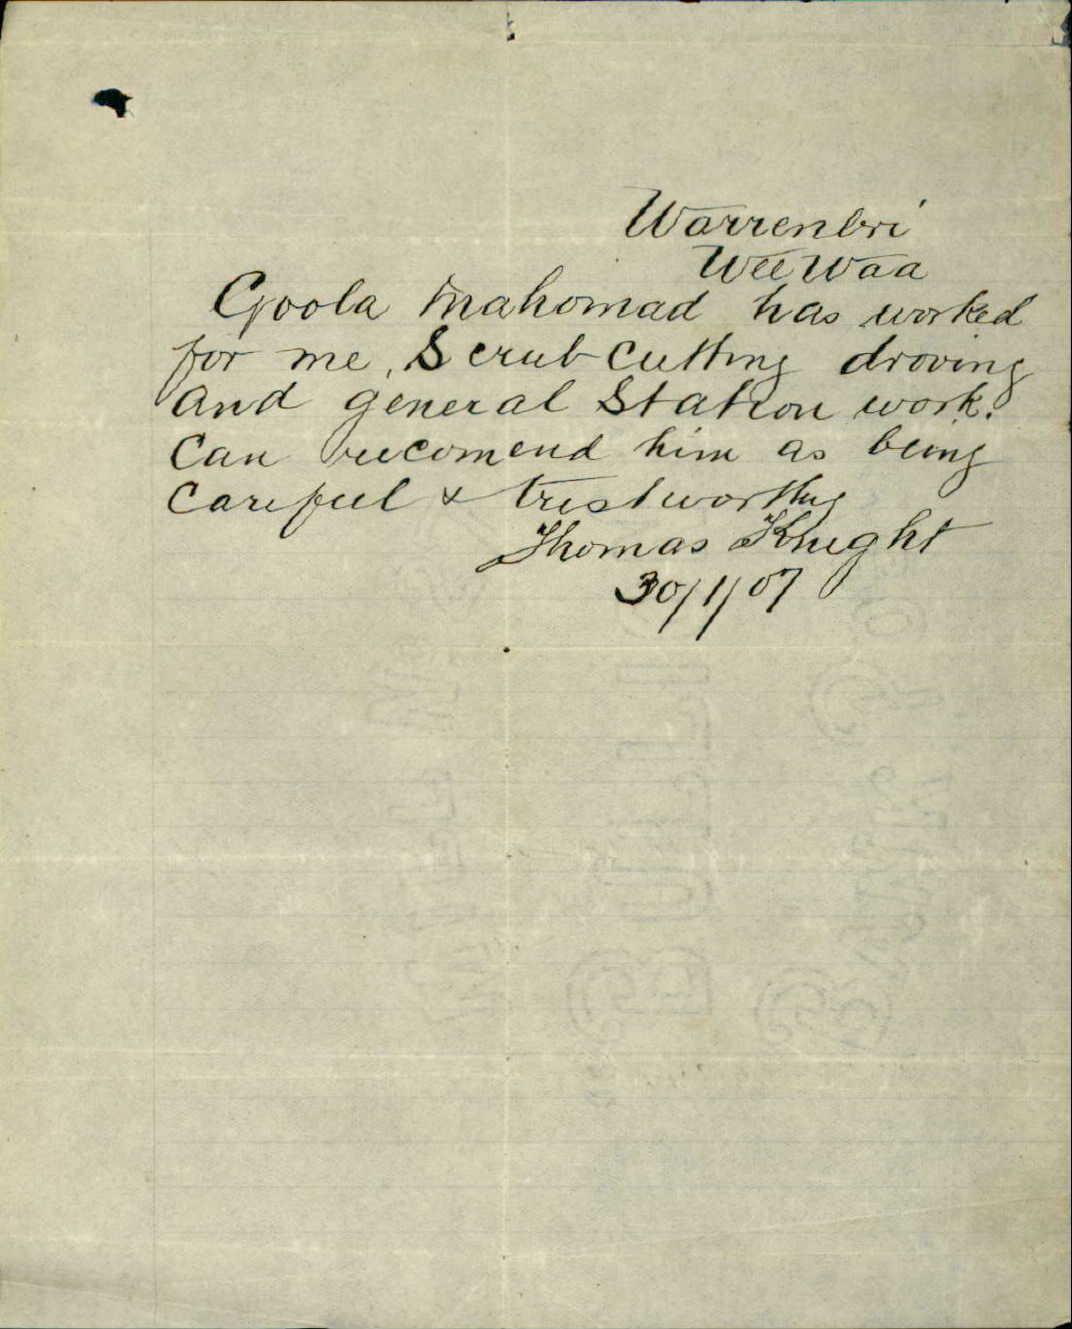 Warrenbri
Wee Waa
Goola Mahomad has worked
for me, Scrub Cutting droving
and general Station work.
Can recomend him as being
Careful & trustworthy
Thomas Knight
30/1/07